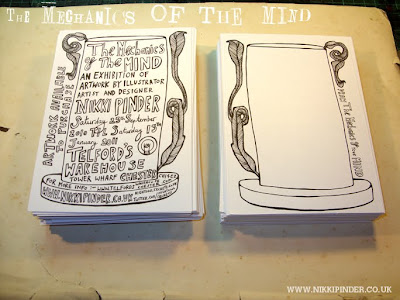 The Mechanics OF The Mind
The Mechanics
of The MIND
AN EXHIBITION OF
ARTWORK BY ILLUSTRATOR
ARTIST AND DESIGNER
NIKKI PINDER
Saturday 25th September
2010 Till Saturday 15th
January 2011
TELFORD'S
WAREHOUSE
TOWER WHARF CHESTER
FOR MORE INFO :- WWW.TELFORDS
WWW.NIKKIPINDER.CO.UK
ARTWORK AVAILABLE
TO PURCHASE
The Mechanics of The MIND
WWW.NIKKIPINDER.CO.UK